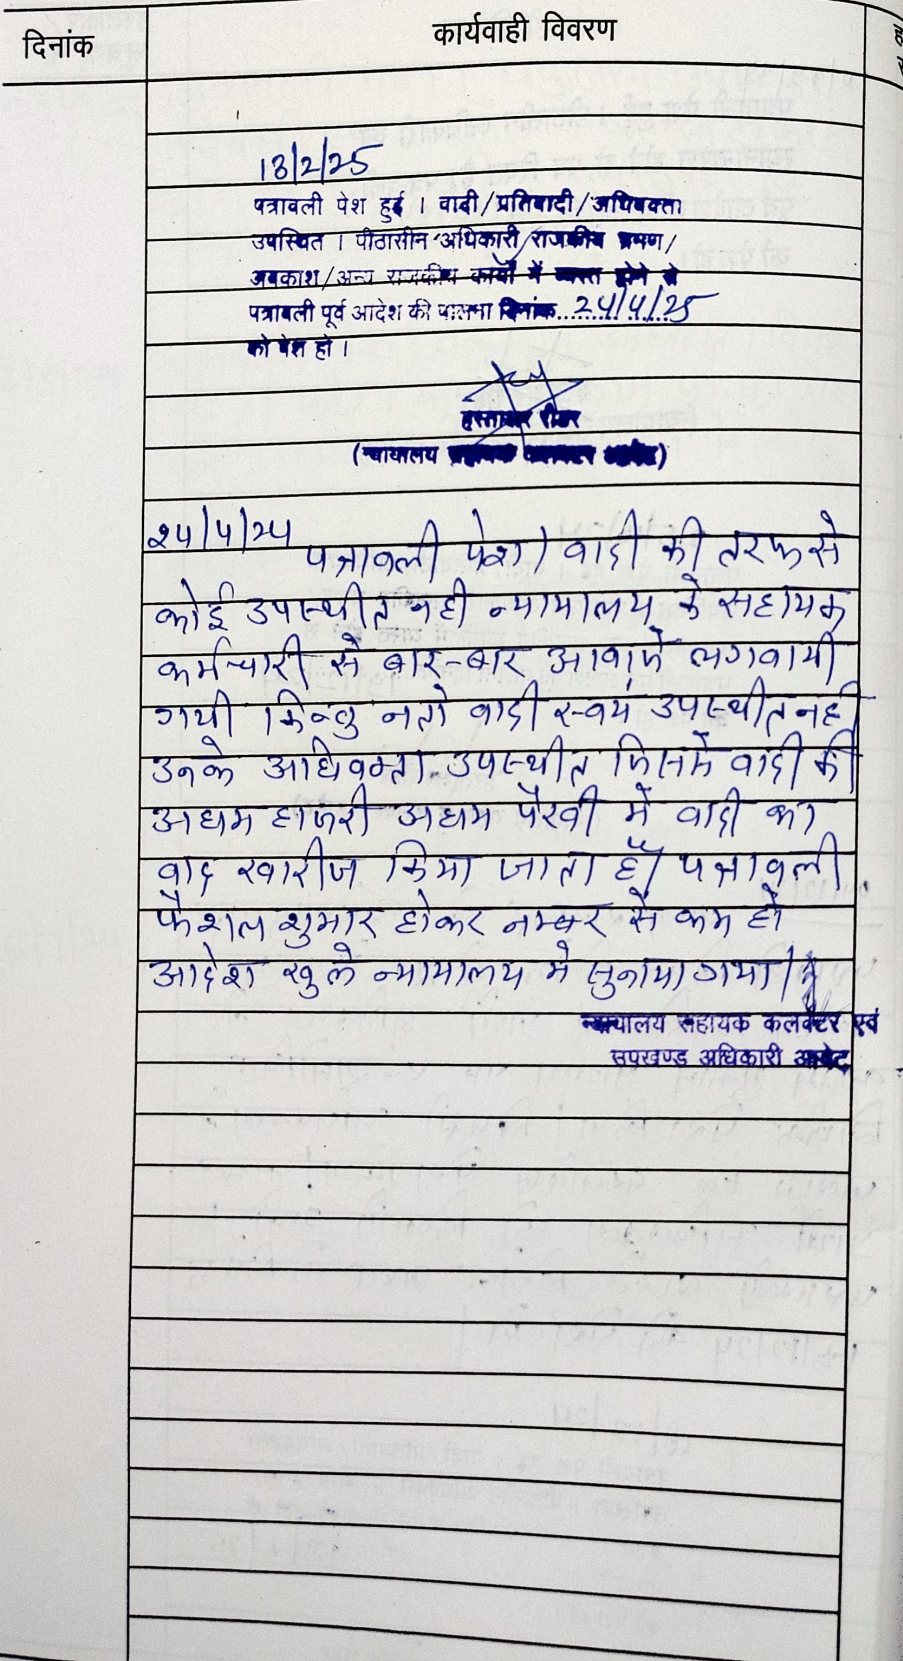 दिनांक
कार्यवाही विवरण
13/2/25
पत्रावली पेश हुई । वादी/प्रतिवादी/अधिवक्ता
उपस्थित । पीठासीन अधिकारी/राजकीय भ्रमण/
अवकाश/अन्य राजकीय कार्यों में व्यस्त होने से
पत्रावली पूर्व आदेश की पालना दिनांक...24/4/25
को पेश हो ।
हस्ताक्षर रीडर
(न्यायालय सहायक कलक्टर आमेट)
24/4/24
पत्रावली पेश। वादी की तरफ से
कोई उपस्थीत नही न्यायालय के सहायक
कर्मचारी से बार-बार आवाजे लगवायी
गयी किन्तु नतो वादी स्वयं उपस्थीत नही
उनके अधिवक्ता उपस्थीत जिसमे वादी की
अधम हाजरी अधम पैरवी में वादी का
वाद खारीज किया जाता हैं। पत्रावली
फैशल शुमार होकर नम्बर से कम हो
आदेश खुले न्यायालय मे सुनाया गया।
न्यायालय सहायक कलक्टर एवं
उपखण्ड अधिकारी आमेट